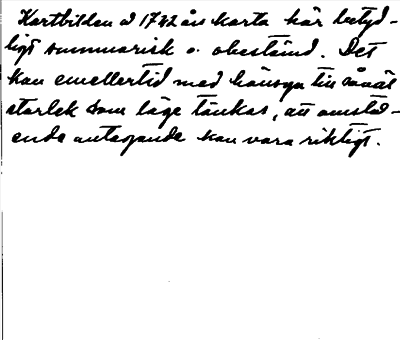 Kartbilden å 1742 års karta här betyd-
ligt summarisk o. obestämd. Det
kan emellertid med hänsyn till såväl
storlek som läge tänkas, att omstå-
ende antagande kan vara riktigt.